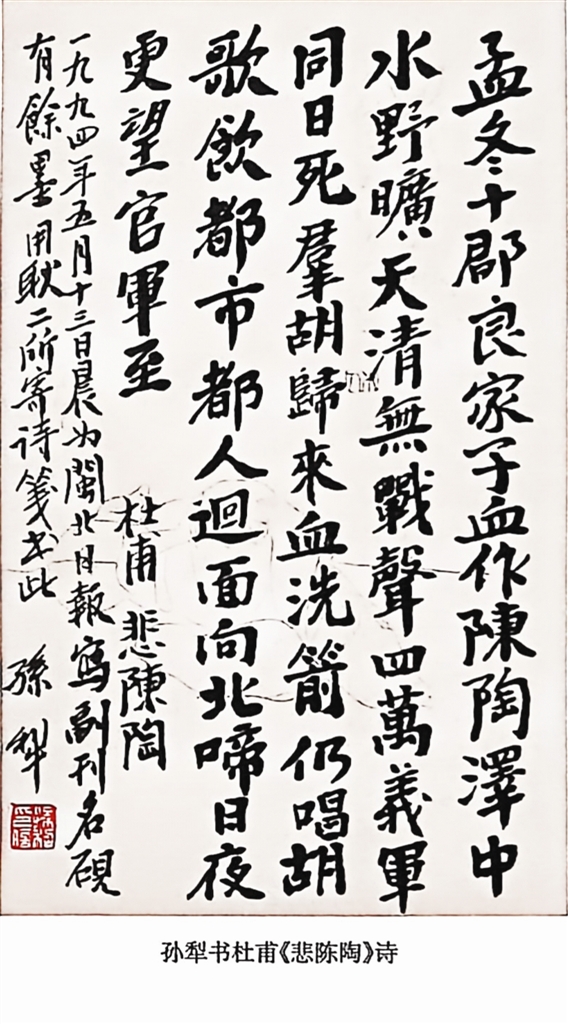 孟冬十郡良家子血作陳陶澤中
水野曠天清無戰聲四萬義軍
同日死羣胡歸來血洗箭仍唱胡
歌飲都市都人迴面向北啼日夜
更望官軍至 杜甫 悲陳陶
一九九四年五月十三日晨为閩北日報寫副刊名硯
有餘墨用耿二所寄诗箋书此 孫犁
孙犁书杜甫《悲陈陶》诗